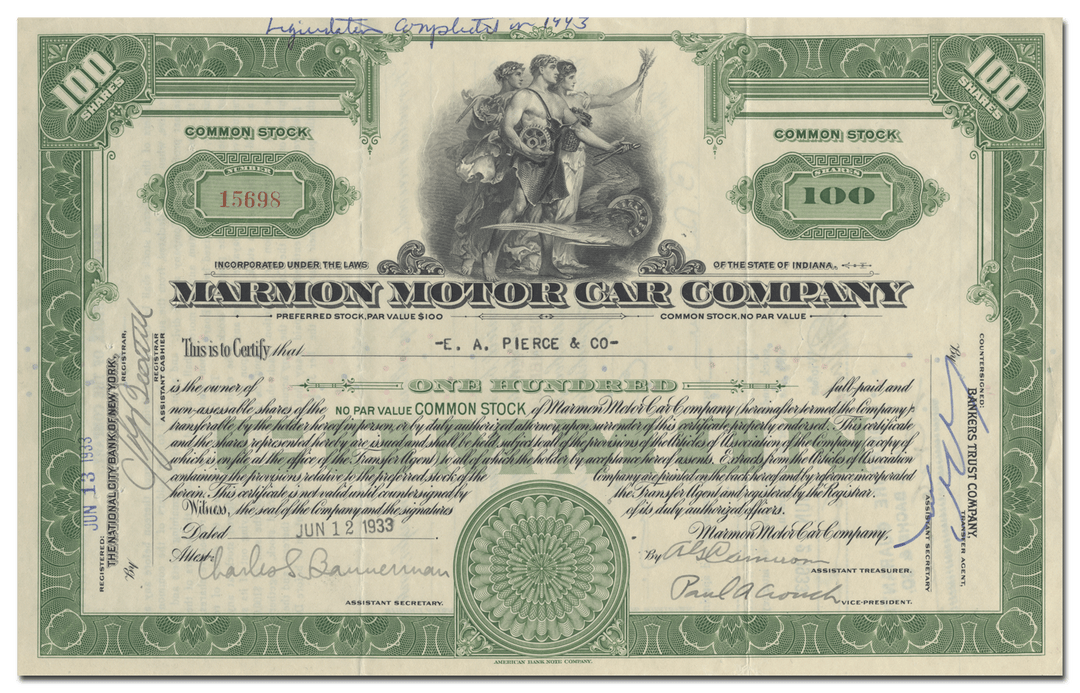 Liquidation Completed in 1943
100 SHARES
100 SHARES
COMMON STOCK
COMMON STOCK
NUMBER
15698
SHARES
100
INCORPORATED UNDER THE LAWS
OF THE STATE OF INDIANA.
MARMON MOTOR CAR COMPANY
PREFERRED STOCK, PAR VALUE $100
COMMON STOCK, NO PAR VALUE
This is to Certify that -E. A. PIERCE & CO-
is the owner of ONE HUNDRED full-paid and
non-assessable shares of the NO PAR VALUE COMMON STOCK of Marmon Motor Car Company (hereinafter termed the Company)
transferable by the holder hereof in person, or by duly authorized attorney, upon surrender of this certificate properly endorsed. This certificate
and the shares represented hereby are issued and shall be held, subject to all of the provisions of the Articles of Association of the Company (a copy of
which is on file at the office of the Transfer Agent) to all of which the holder by acceptance hereof assents. Extracts from the Articles of Association
containing the provisions relative to the preferred stock of the Company are printed on the back hereof and by reference incorporated
herein. This certificate is not valid until countersigned by the Transfer Agent and registered by the Registrar.
Witness, the seal of the Company and the signatures of its duly authorized officers.
Dated JUN 12 1933
Marmon Motor Car Company,
Attest: Charles S. Bannerman
ASSISTANT SECRETARY.
By
ASSISTANT TREASURER.
Paul A Crouch VICE-PRESIDENT.
REGISTERED: JUN 13 1933
THE NATIONAL CITY BANK OF NEW YORK,
REGISTRAR,
By
REGISTRAR
ASSISTANT CASHIER
COUNTERSIGNED:
BANKERS TRUST COMPANY,
TRANSFER AGENT,
By
ASSISTANT SECRETARY
AMERICAN BANK NOTE COMPANY.